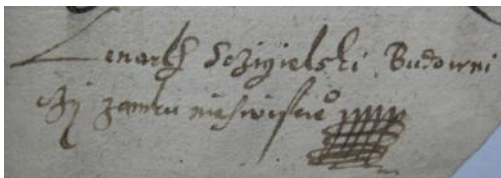 Lenarth Sczigielski Budowni
czÿ zamku nieswiskie°